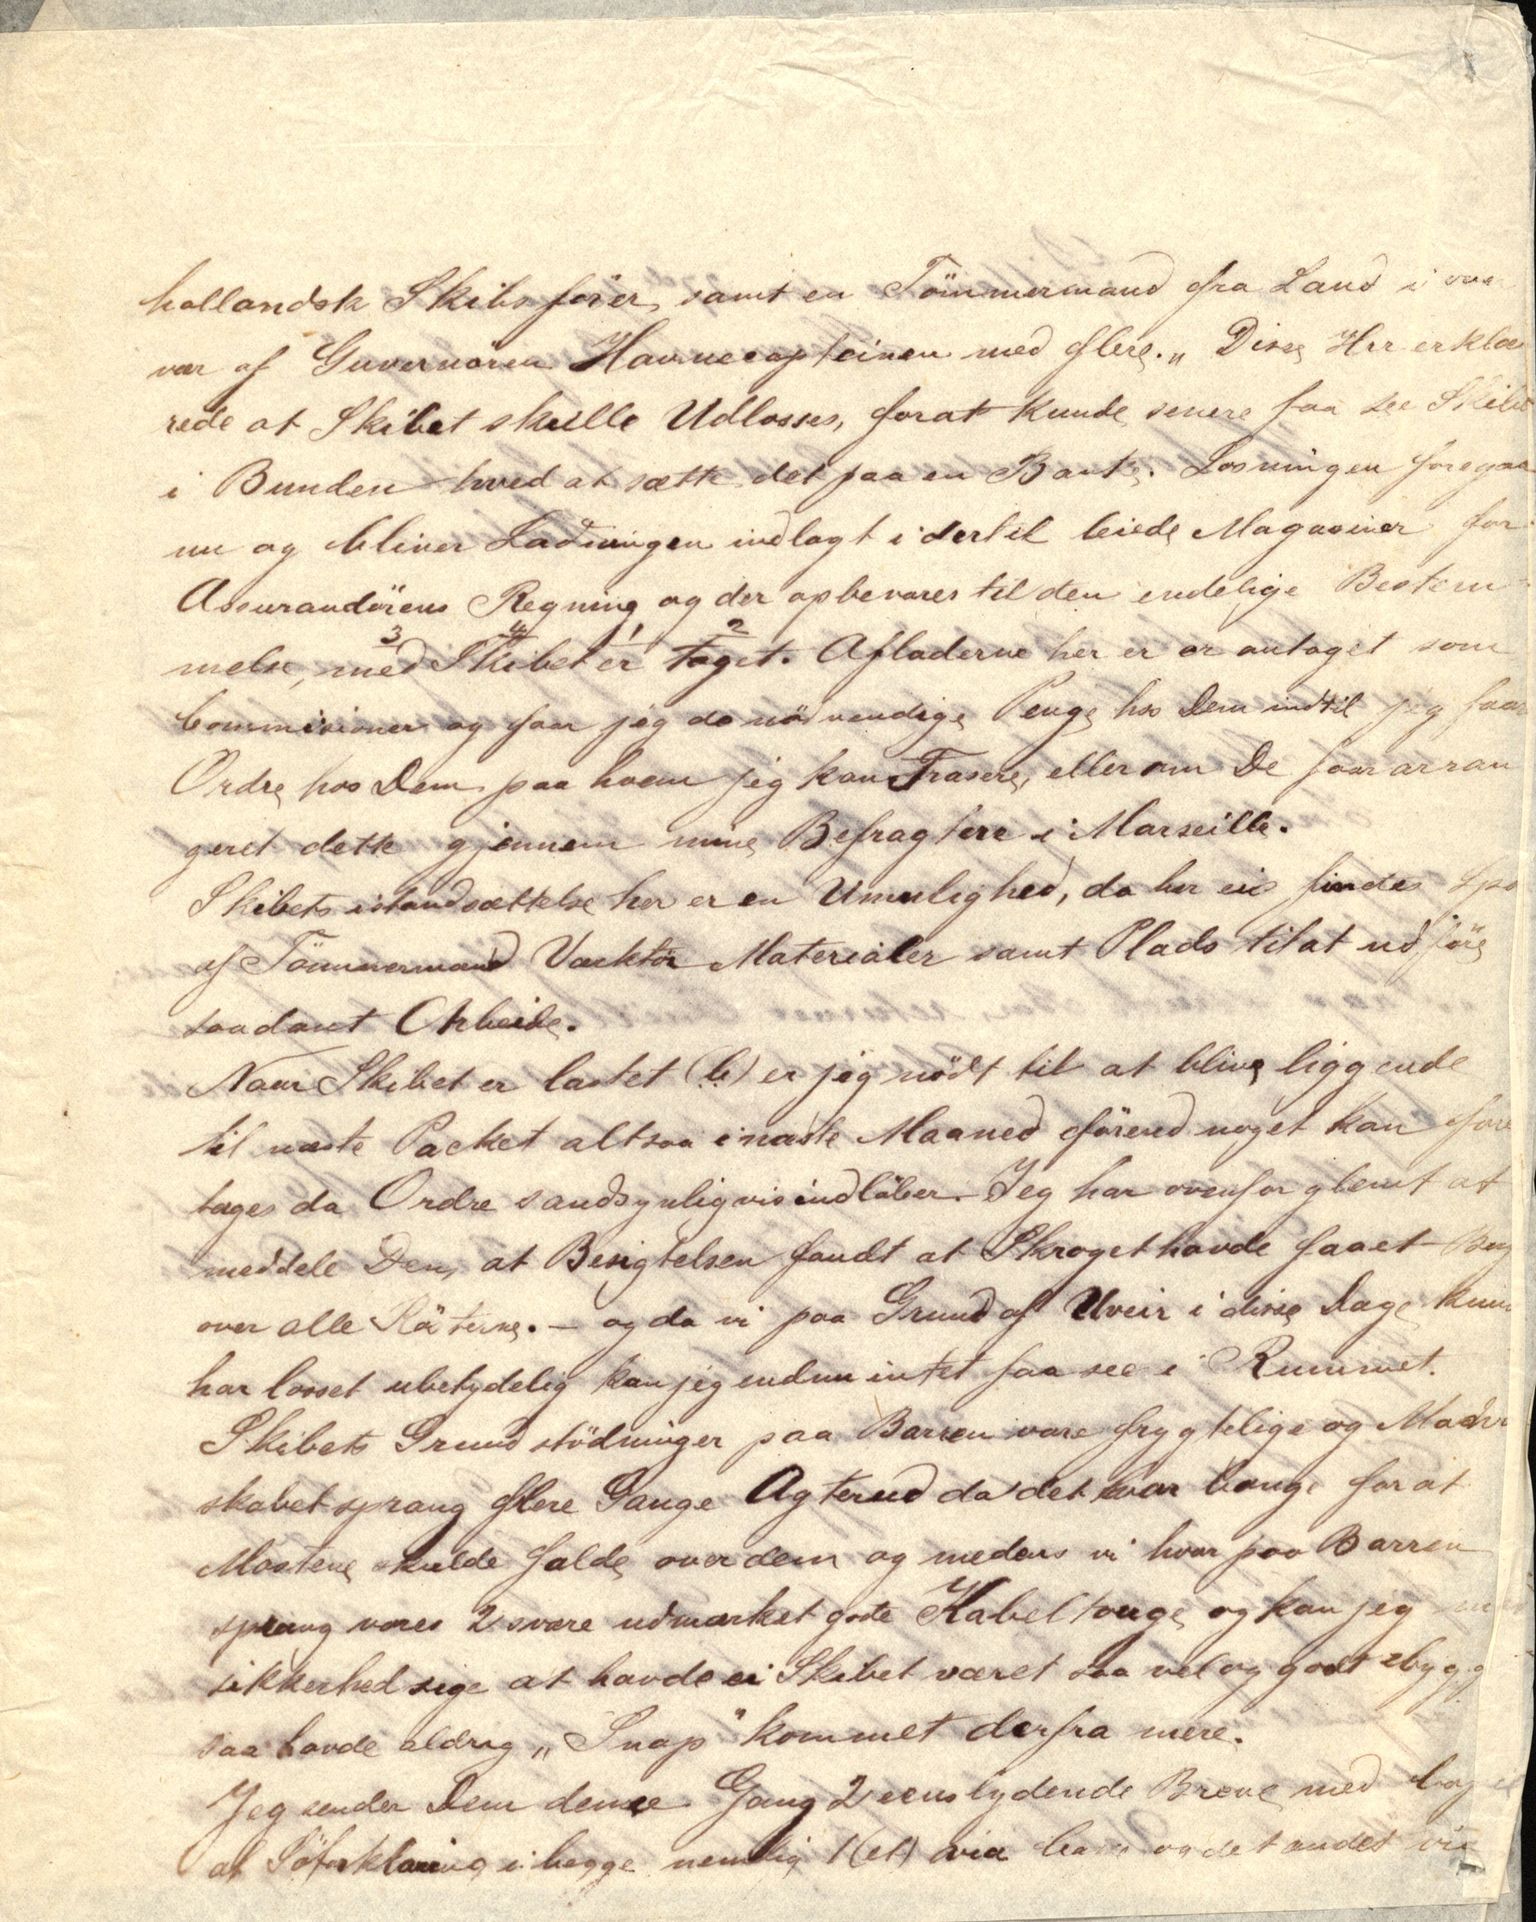 hollandsk Skibsfører, samt en Tömmermand fra Land i over
vær af Guvernøren Havnecapteinen med flere.„ Disse Hrr erklæ
rede at Skibet skulle Udlosses, forat kunde senere faa see Skibet
i Bunden hved at sætte det paa en Bank. Losningen foregaar
nu og bliver Ladningen indlagt i dertil leiede Magasiner for
Assurandörens Regning og der opbevares til den endelige Bestem
3 4 1 2
melse, med Skibet er taget. Afladerne her er er antaget som
Commisioner og faar jeg de nödvendige Penge hos Dem indtil jeg faar
Ordre hos Dem paa hvem jeg kan Trasere, eller om De faar arran
geret dette gjennem mine Befragtere i Marseille.
Skibets istandsættelse her er en Umulighed, da her eis findes Spo
af Tömmermand Værktöi Materialer samt Plads til at udföre
saadant Arbeide.
Naar Skibet er lastet (b) er jeg nödt til at blive liggende
til næste Packet altsaa i næste Maaned förend noget kan fore
tages da Ordre sandsynligvis indlöber. Jeg har ovenfor glemt at
meddele Dem, at Besigtelsen fandt at Skroget havde faaet Bug
over alle Rösterne. — og da vi paa Grund af Uveir i disse Dage kun
har losset ubetydelig kan jeg endnu intet faa see i Rummet.
Skibets Grundstödninger paa Barren vare frygtelige og Mand
skabet sprang flere Gange Agterud da det var bange for at
Mastene skulde falde over dem og medens vi hvar paa Barren
sprang vores 2 svære udmærket gode Kabeltouge og kan jeg med
sikkerhed sige at havde ei Skibet været saa vel og godt ebygg
saa havde aldrig „Snap" kommet derfra mere.
Jeg sender Dem denne Gang 2 eenslydende Breve med
at Söforklaring i begge nemlig 1 (et) via og det andet via